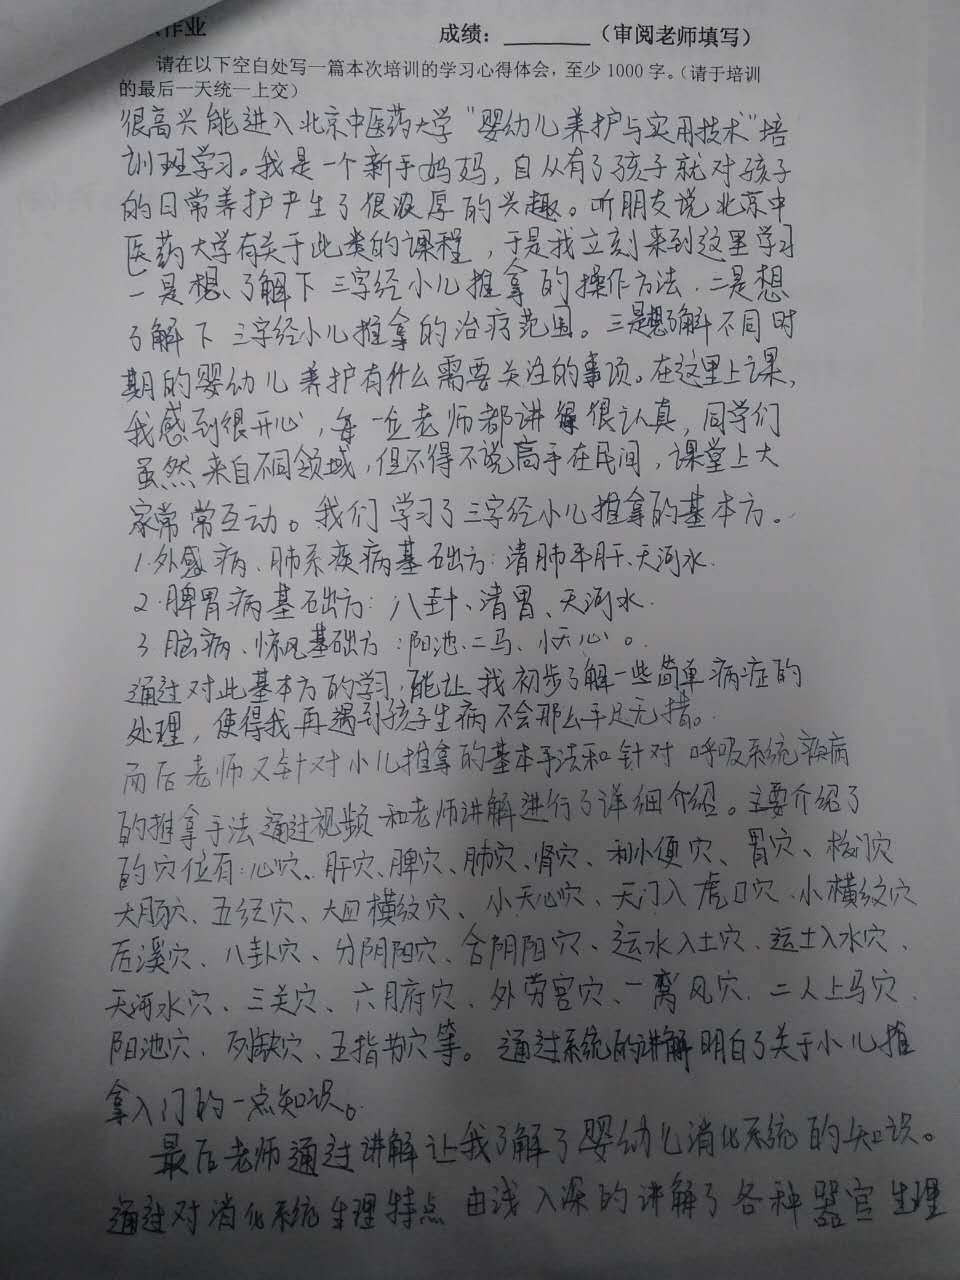 作业
成绩：________（审阅老师填写）
请在以下空白处写一篇本次培训的学习心得体会，至少1000字。（请于培训
的最后一天统一上交）
很高兴能进入北京中医药大学“婴幼儿养护与实用技术”培
训班学习。我是一个新手妈妈，自从有了孩子就对孩子
的日常养护产生了很浓厚的兴趣。听朋友说北京中
医药大学有关于此类的课程，于是我立刻来到这里学习
一是想了解下三字经小儿推拿的操作方法．二是想
了解下三字经小儿推拿的治疗范围。三是想了解不同时
期的婴幼儿养护有什么需要关注的事项。在这里上课，
我感到很开心，每一位老师都讲得很认真，同学们
虽然来自不同领域，但不得不说高手在民间，课堂上大
家常常互动。我们学习了三字经小儿推拿的基本方。
1.外感病、肺系疾病基础方：清肺平肝、天河水．
2.脾胃病基础方：八卦、清胃、天河水．
3.脑病、惊风基础方：阳池、二马、小天心。
通过对此基本方的学习，能让我初步了解一些简单病症的
处理，使得我再遇到孩子生病不会那么手足无措。
而后老师又针对小儿推拿的基本手法和针对呼吸系统疾病
的推拿手法通过视频和老师讲解进行了详细介绍。主要介绍了
的穴位有：心穴、肝穴、脾穴、肺穴、肾穴、利小便穴、胃穴、板门穴
大肠穴、五经穴、大四横纹穴、小天心穴、天门入虎口穴、小横纹穴
后溪穴、八卦穴、分阴阳穴、合阴阳穴、运水入土穴、运土入水穴、
天河水穴、三关穴、六月府穴、外劳宫穴、一离风穴、二人上马穴、
阳池穴、列缺穴、五指节穴等。通过系统的讲解明白了关于小儿推
拿入门的一点知识。
最后老师通过讲解让我了解了婴幼儿消化系统的知识。
通过对消化系统生理特点由浅入深的讲解了各种器官生理